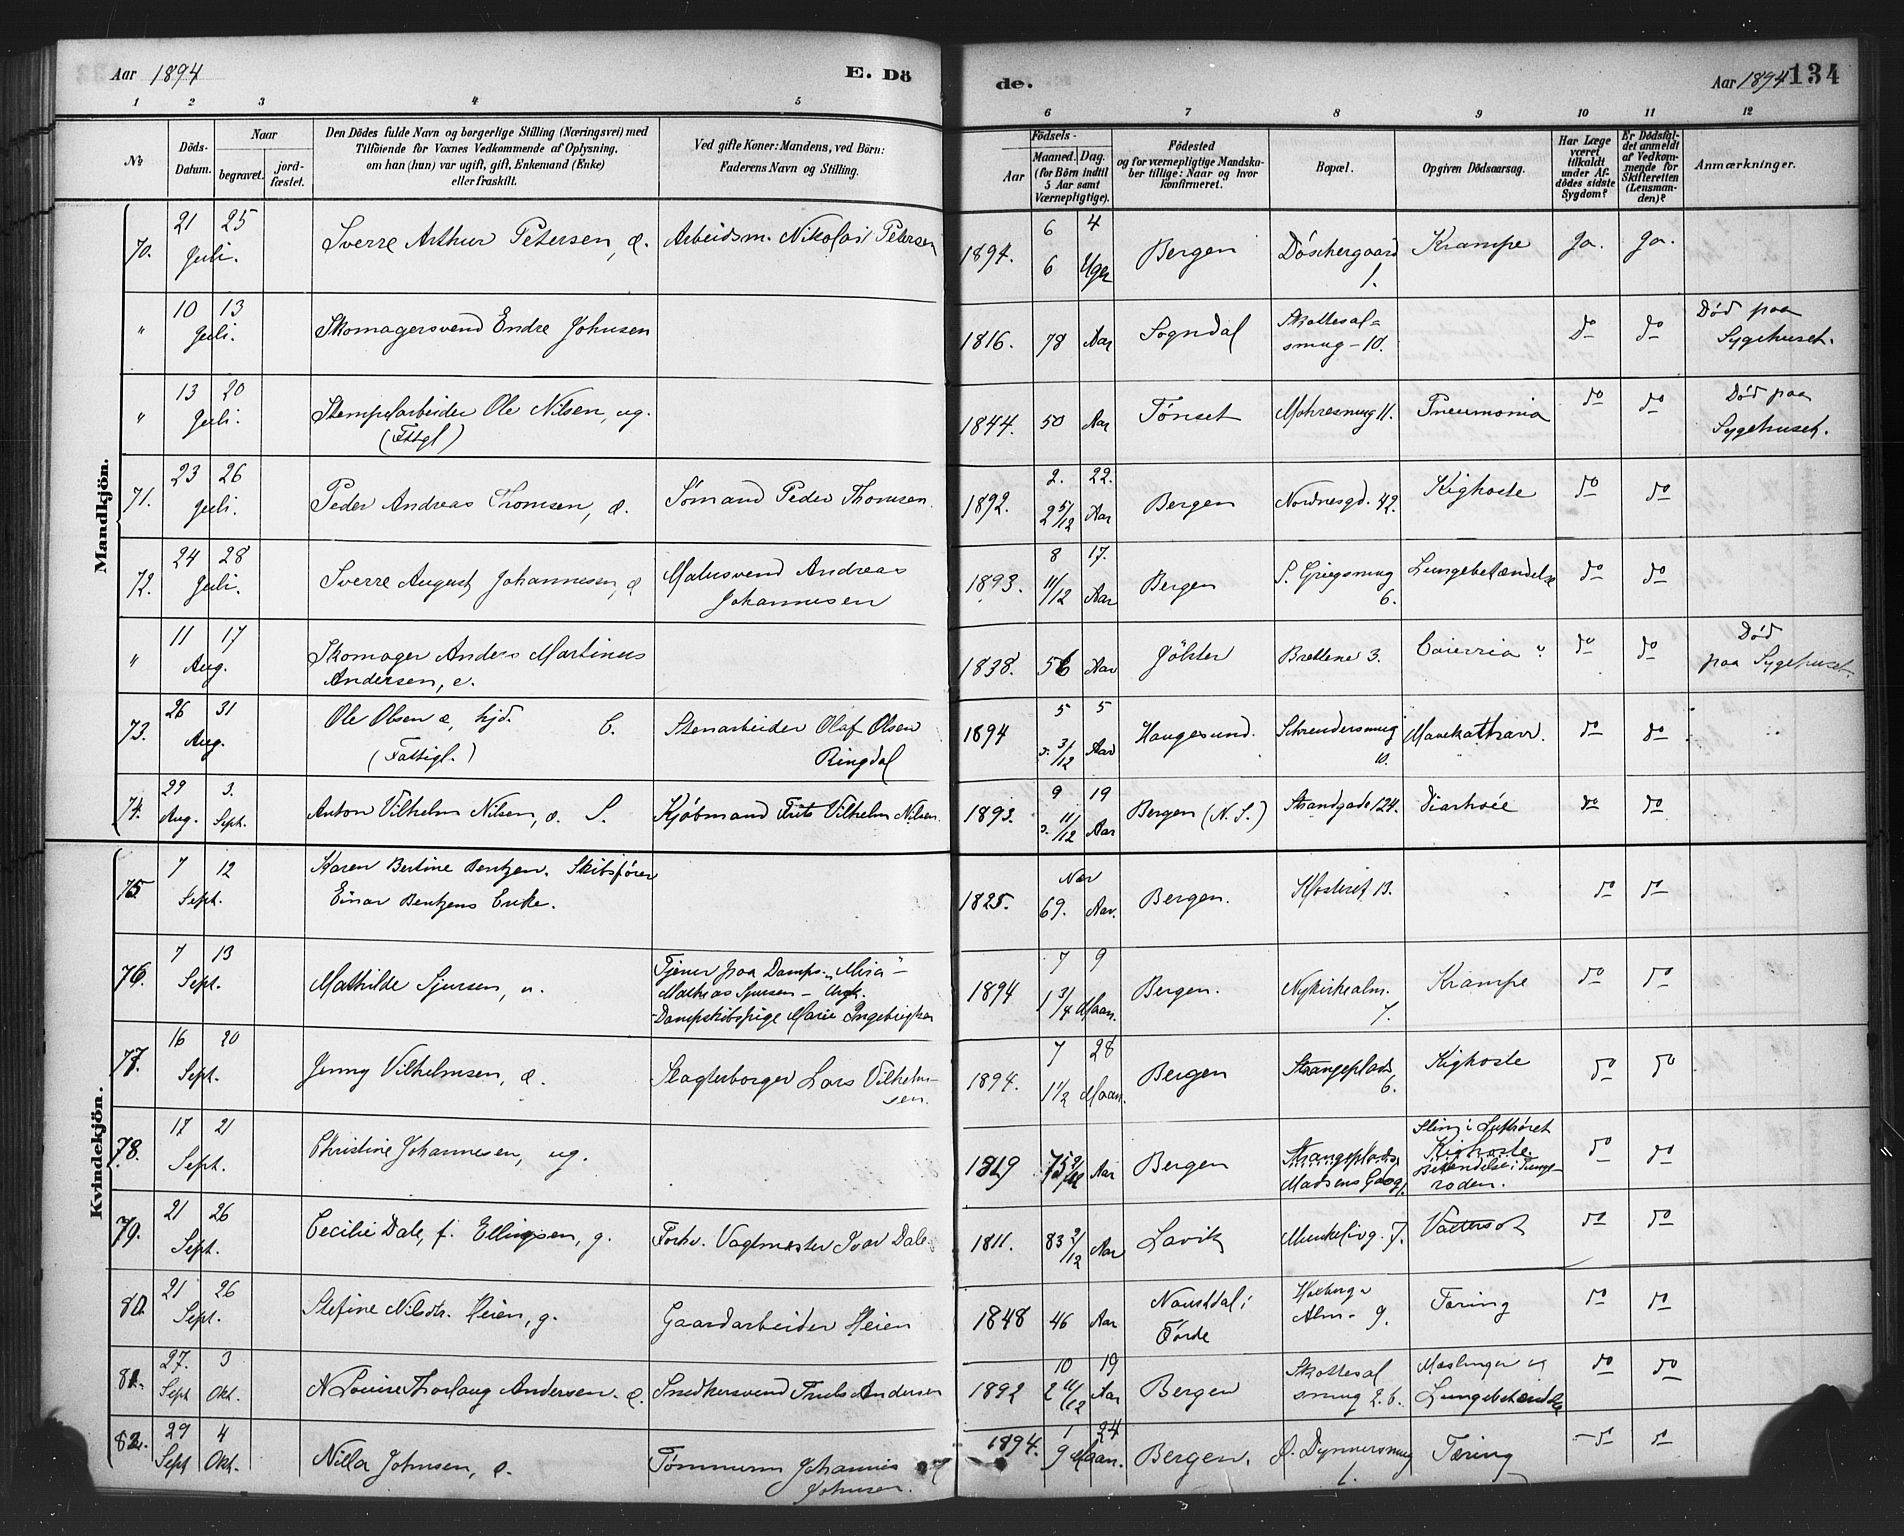 Aar 1894 E. Dö de. Aar 1894 134
1 2 3 4 5 6 7 8 9 10 11 12
No
Döds-Datum.
Naar
begravet.
jord-fæstet.
Den Dödes fulde Navn og borgerlige Stilling (Næringsvei) med
Tilföiende for Voxnes Vedkommende af Oplysning,
om han (hun) var ugift, gift, Enkemand (Enke)
eller fraskilt.
Ved gifte Koner: Mandens, ved Börn:
Faderens Navn og Stilling.
Födsels-
Aar
Maaned. Dag.
(for Börn indtil
5 Aar samt
Værnepligtige).
Födested
og for værnepligtige Mandska-
ber tillige: Naar og hvor
konfirmeret.
Bopæl.
Opgiven Dödsaarsag.
Har Læge
været
tilkaldt
under Af-
dödes sidste
Sygdom?
Er Dödsfal-
det anmeldt
af Vedkom-
mende for
Skifteretten
(Lensman-
den)?
Anmærkninger.
Mandkjön.
70. 21 25 Juli. Sverre Arthur Petersen, æ. Arbeidsm. Nikolai Petersen 1894. 6 4 6 Uger Bergen 1. Krampe Ja. Ja.
" 10 13 Juli. Skomagersvend Endre Johnsen 1816. 78 Aar Sogndal Skottesal=
smug - 10. do do Död paa
Sygehuset.
" 13 20 Juli. Stempelarbeider Ole Nilsen, ug.
(Fttgl) 1844. 50 Aar Tönset Mohresmug 11. Pneumonia do do Död paa
Sygehuset.
71. 23 26 Juli. Peder Andreas Thomsen, æ. Sömand Peder Thomsen. 1892. 2. 22. 2 5/12 Aar Bergen Nordnesgd. 42. Kighoste do do
72. 24 28 Juli. Sverre August Johannesen, æ Malersvend Andreas
Johannesen 1893. 8 17. 11/12 Aar Bergen P. Griegsmug
6. Lungebetændelse do do
" 11 17 Aug. Skomager Anders Martinus
Andersen, e. 1838. 56 Aar Jölster Brettene 3. do do Död
paa Sygehuset
73. 26 31 Aug. Ole Olsen æ, hjd. C.
(Fattigl.) Stenarbeider Olaf Olsen
Ringdal 1894 5 5 3/12 Aar Haugesund. Schreudersmug
10. Mavekatharr. do do
74. 29 Aug. 3. Sept. Anton Vilhelm Nilsen, æ. S. Kjöbmand Frits Vilhelm Nilsen. 1893. 9 19 11/12 Aar Bergen (N. S.) Strandgade 124. Diarhoie do do
Kvindekjön.
75 7 12 Sept. Karen Bertine Bentzen. Skibsförer
Einar Bentzens Enke. 1825. Nær 69. Aar. Bergen. Klostret 13. do do
76. 7 13 Sept. Mathilde Sjursen, u. Tjener paa Damps. "Mira"
Mathias Sjursen - Ungk.
- Dampskibspige Marie 1894 7 9 1 3/4 Maan. Bergen. Nykirkealm.
7. Krampe do do
77. 16 20 Sept. Jenny Vilhelmsen, æ. Slagterborger Lars Vilhelm-
sen. 1894. 7 28 1 1/2 Maan. Bergen Strangeplads
6. Kighoste do do
78. 17 21 Sept. Christine Johannesen, ug. 1819 75 Aar Bergen Strangeplads
Madsens Slim i Luftröret
Kighoste. do do
79. 21 26 Sept. Cecilie Dale, f. Ellingsen, g. Forhv. Vagtmester Ivar Dale 1811. 83 2/12 Aar Lavik Munkelivg. 7. Vattersot do do
80. 21 26 Sept. Stefine Nilsdtr. Heien, g. Gaardarbeider Heien 1848 46 Aar Naustdal i
Förde Holbergs
Alm - 9. Tæring do do
81. 27. Sept 3 Okt. N Louise Thorlaug Andersen. æ. Snedkersvend Truls Andersen 1892 10 19 2 11/12 Aar Bergen Skottesal
smug 2.b. Mæslinger og
Lungebetændelse do do
82. 29 Sept 4 Okt. Nilla Johnsen, æ. Tömmerm. Johannes
Johnsen. 1894. 1 24 9 Maan. Bergen. Ö. Dynnersmug
1. Tæring do do